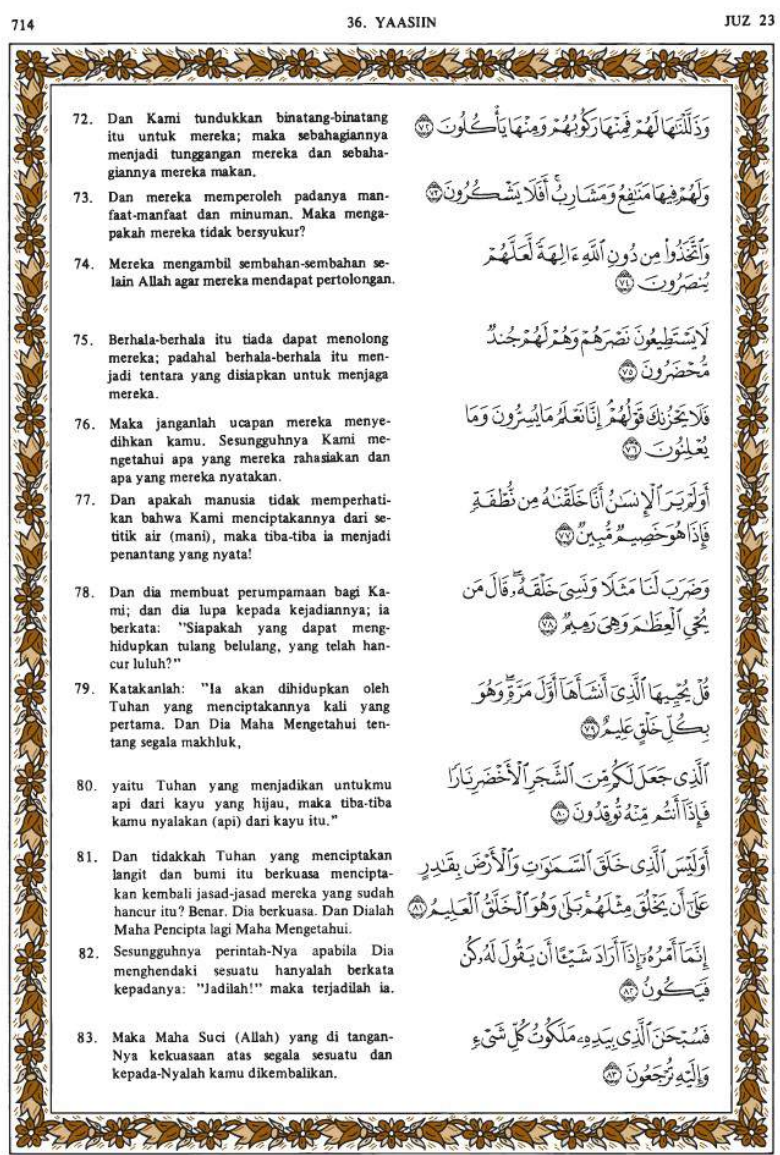 714
36. YAASIIN
JUZ 23
72. Dan Kami tundukkan binatang-binatang
itu untuk mereka; maka sebahagiannya
menjadi tunggangan mereka dan sebaha-
giannya mereka makan.
وَذَلَّلْنَٰهَا لَهُمْ فَمِنْهَا رَكُوبُهُمْ وَمِنْهَا يَأْكُلُونَ ٧٢
73. Dan mereka memperoleh padanya man-
faat-manfaat dan minuman. Maka menga-
pakah mereka tidak bersyukur?
وَلَهُمْ فِيهَا مَنَٰفِعُ وَمَشَارِبُ ۖ أَفَلَا يَشْكُرُونَ ٧٣
74. Mereka mengambil sembahan-sembahan se-
lain Allah agar mereka mendapat pertolongan.
وَٱتَّخَذُوا۟ مِن دُونِ ٱللَّهِ ءَالِهَةً لَّعَلَّهُمْ
يُنصَرُونَ ٧٤
75. Berhala-berhala itu tiada dapat menolong
mereka; padahal berhala-berhala itu men-
jadi tentara yang disiapkan untuk menjaga
mereka.
لَا يَسْتَطِيعُونَ نَصْرَهُمْ وَهُمْ لَهُمْ جُندٌ
مُّحْضَرُونَ ٧٥
76. Maka janganlah ucapan mereka menye-
dihkan kamu. Sesungguhnya Kami me-
ngetahui apa yang mereka rahasiakan dan
apa yang mereka nyatakan.
فَلَا يَحْزُنكَ قَوْلُهُمْ ۘ إِنَّا نَعْلَمُ مَا يُسِرُّونَ وَمَا
يُعْلِنُونَ ٧٦
77. Dan apakah manusia tidak memperhati-
kan bahwa Kami menciptakannya dari se-
titik air (mani), maka tiba-tiba ia menjadi
penantang yang nyata!
أَوَلَمْ يَرَ ٱلْإِنسَٰنُ أَنَّا خَلَقْنَٰهُ مِن نُّطْفَةٍ
فَإِذَا هُوَ خَصِيمٌ مُّبِينٌ ٧٧
78. Dan dia membuat perumpamaan bagi Ka-
mi; dan dia lupa kepada kejadiannya; ia
berkata: "Siapakah yang dapat meng-
hidupkan tulang belulang, yang telah han-
cur luluh?"
وَضَرَبَ لَنَا مَثَلًا وَنَسِىَ خَلْقَهُۥ ۖ قَالَ مَن
يُحْىِ ٱلْعِظَٰمَ وَهِىَ رَمِيمٌ ٧٨
79. Katakanlah: "Ia akan dihidupkan oleh
Tuhan yang menciptakannya kali yang
pertama. Dan Dia Maha Mengetahui ten-
tang segala makhluk,
قُلْ يُحْيِيهَا ٱلَّذِىٓ أَنشَأَهَآ أَوَّلَ مَرَّةٍ ۖ وَهُوَ
بِكُلِّ خَلْقٍ عَلِيمٌ ٧٩
80. yaitu Tuhan yang menjadikan untukmu
api dari kayu yang hijau, maka tiba-tiba
kamu nyalakan (api) dari kayu itu."
ٱلَّذِى جَعَلَ لَكُم مِّنَ ٱلشَّجَرِ ٱلْأَخْضَرِ نَارًا
فَإِذَآ أَنتُم مِّنْهُ تُوقِدُونَ ٨٠
81. Dan tidakkah Tuhan yang menciptakan
langit dan bumi itu berkuasa mencipta-
kan kembali jasad-jasad mereka yang sudah
hancur itu? Benar. Dia berkuasa. Dan Dialah
Maha Pencipta lagi Maha Mengetahui.
أَوَلَيْسَ ٱلَّذِى خَلَقَ ٱلسَّمَٰوَٰتِ وَٱلْأَرْضَ بِقَٰدِرٍ
عَلَىٰٓ أَن يَخْلُقَ مِثْلَهُم ۚ بَلَىٰ وَهُوَ ٱلْخَلَّٰقُ ٱلْعَلِيمُ ٨١
82. Sesungguhnya perintah-Nya apabila Dia
menghendaki sesuatu hanyalah berkata
kepadanya: "Jadilah!" maka terjadilah ia.
إِنَّمَآ أَمْرُهُۥٓ إِذَآ أَرَادَ شَيْـًٔا أَن يَقُولَ لَهُۥ كُن
فَيَكُونُ ٨٢
83. Maka Maha Suci (Allah) yang di tangan-
Nya kekuasaan atas segala sesuatu dan
kepada-Nyalah kamu dikembalikan.
فَسُبْحَٰنَ ٱلَّذِى بِيَدِهِۦ مَلَكُوتُ كُلِّ شَىْءٍ
وَإِلَيْهِ تُرْجَعُونَ ٨٣